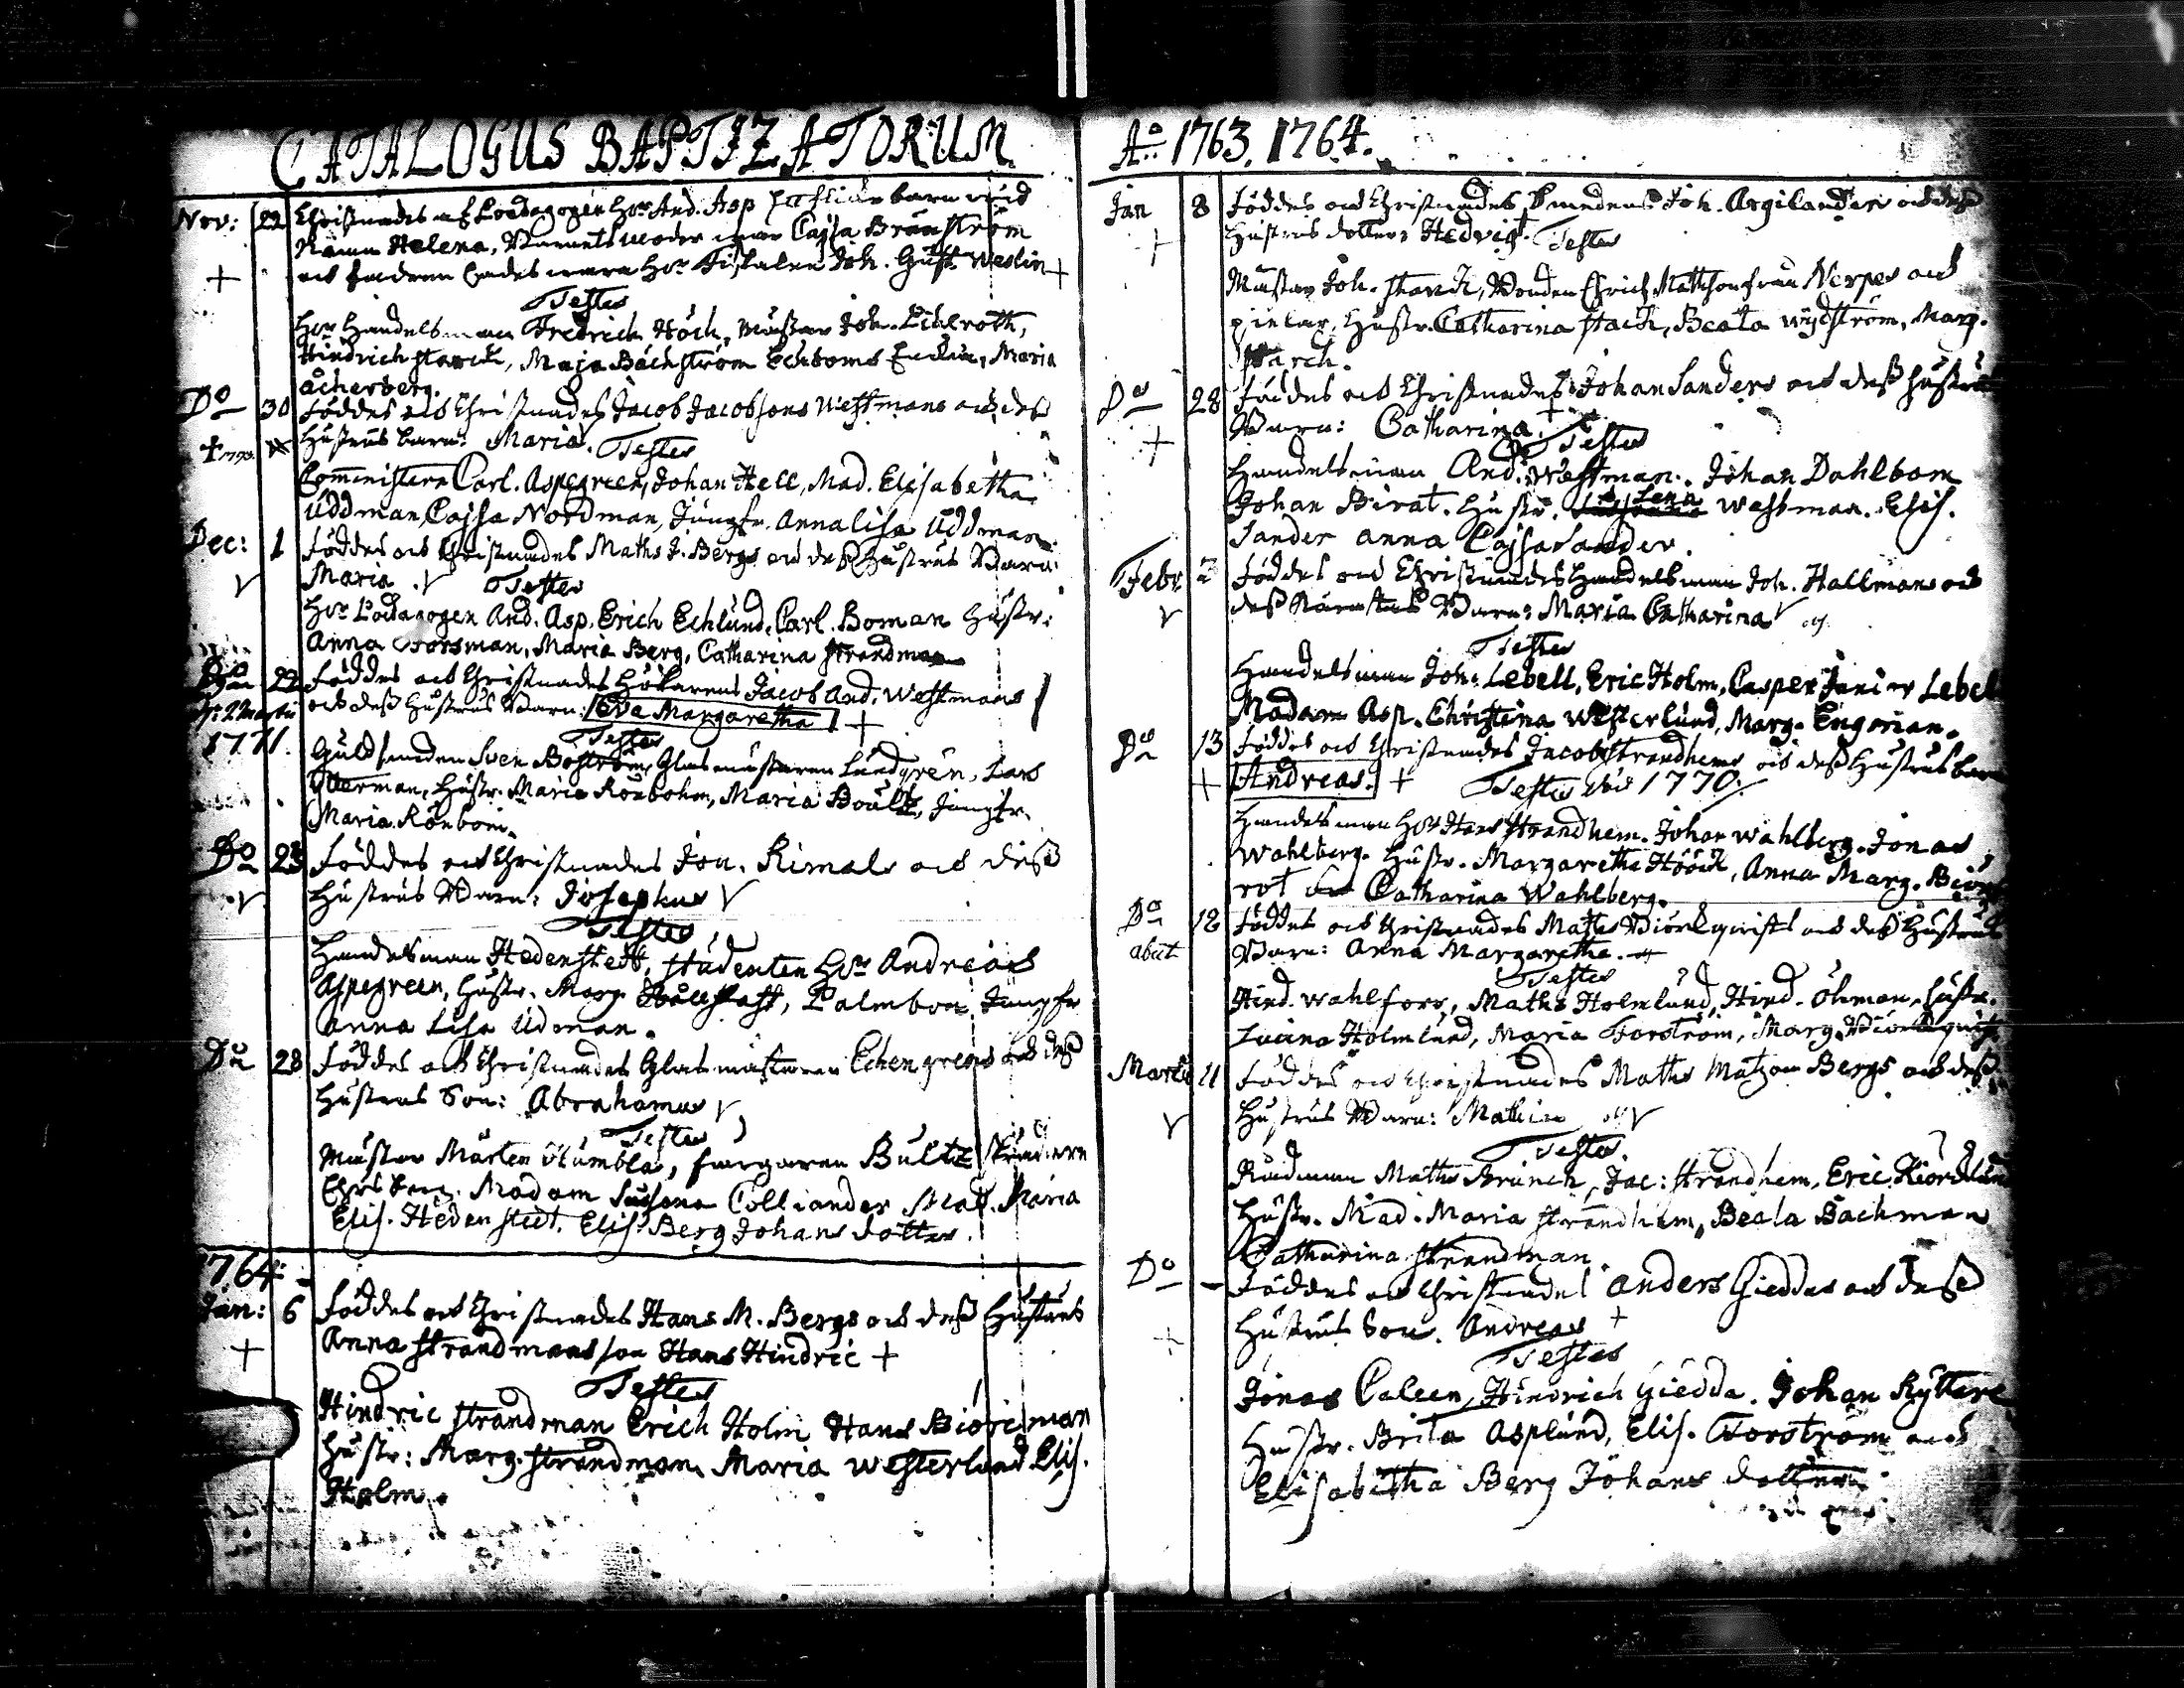 CATALOGUS BAPTIZATORUM
Nov: 22 Christnades af Pædagogen Hr And. Asp barn wid
Namn Helena, Barnets moder war Cajsa Brunström
och fadren Hr Fiskalen Joh. Gust. Weslin +
+
Testes
Hr Handelsman Fredrich Höck, Mästar Joh. Liebroth,
Hindrich Starck, Maja Bäckström Eckboms Enka, Maria
Åckerberg.
Do 30 Föddes och Christnades Jacob Jacobsons Westmans och dess
hustrus barn: Maria. Testes
Comministern Carl. Aspegreen, Johan Hell, Mad. Elisabetha
Uddman, Cajsa Nordman, Jungfr. Anna Lisa Uddman.
Dec: 1 Föddes och Christnades Maths J. Bergs och dess Hustrus Barn:
Maria. Testes
Hr Pædagogen And. Asp. Erich Echlund, Carl. Boman Hustr:
Anna Forsman, Maria Berg, Catharina Strandman
Do 22 Föddes och Christnades Hökarens Jacob And. Westmans
och dess Hustrus Barn: Eva Margaretha +
1771. Testes
Guldsmeden Sven Boström, Glasmästaren Lundgren, Lars
Otterman, Hustr. Maria Rönbohm, Maria Boultz, Jungfr.
Maria Rönbom.
Do 23 Föddes och Christnades Jon. Kimals och dess
Hustrus Barn: Josephus
Testes
Handelsman Hedenstedt, Studenten Hr Andreas
Aspegreen, Hustr. Marg. Palmbom, Jungfr
Anna Lisa Udman.
Do 28 Föddes och Christnades Glasmästaren Echengrens och dess
Hustrus Son: Abrahamus
Testes
Mästar Mårten Humbla, färgaren Bultz
Madam Susanna Colliander Maria
Elis. Hedenstedt. Elis. Berg Johans dotter.
1764:
Jan: 6 Föddes och Christnades Hans M. Bergs och dess Hustrus
Anna Strandmans son Hans Hindric +
+
Testes
Hindric Strandman Erich Holm Hans Biörckman
Hustr: Marg. Strandman, Maria Westerlund Elis.
Holm.
Ao 1763. 1764.
Jan 8 Föddes och Christnades Smedens Joh. Argilanders och dess
+ Hustrus dotter: Hedvig. Testes
Mästar Joh. Starck, Bonden Ehrich Mattsson från Nerpes och
Hustr. Catharina Starck, Beata Wydström, Marg.
Starck.
Do 28 Föddes och Christnades Johan Sanders och dess Hustrus
+ Barn: Catharina. + Testes
Handelsman And. Westman. Johan Dahlbom
Johan Birat. Hustr. Lena Westman. Elis.
Sander Anna Cajsa Sander.
Febr. 2 Föddes och Christnades Handelsman Joh. Hallmans och
dess Hustrus Barn: Maria Catharina
Testes
Handelsman Joh. Lebell, Eric Holm, Casper Junior Lebell
Madam Asp. Christina Westerlund, Marg. Engman.
Do 13 Föddes och Christnades Jacob Strandhems och dess Hustrus barn
+ Andreas. + Testes 1770.
Handelsman Hr Hans Strandhem. Johan Wahlberg. Jonas
Wahlberg. Hustr. Margaretha Hööck, Anna Marg. Biörk
rot Catharina Wahlberg.
Do 18 Föddes och Christnades Maths Biörkqvists och dess Hustrus
abiit Barn: Anna Margaretha.
Testes
Hind. Wahlfors, Maths Holmlund, Hind. Öhman, Hustr.
Lucina Holmlund, Maria Forström, Marg. Biörkquist
Marti 11 Föddes och Christnades Maths Matzon Bergs och dess
Hustrus Barn: Mathias
Testes.
Rådman Maths Brunck, Jac: Strandhem, Eric Kiordlund
Hustr. Mad. Maria Strandhem, Beata Backman
Catharina Strandman.
Do - Föddes och Christnades Anders Gieddes och dess
+ Hustrus Son. Andreas +
Testes
Jonas Caleen, Hindrich Giedda. Johan Ryttere
Hustr. Brita Asplund, Elis. Forström och
Elisabetha Berg Johans dotter.